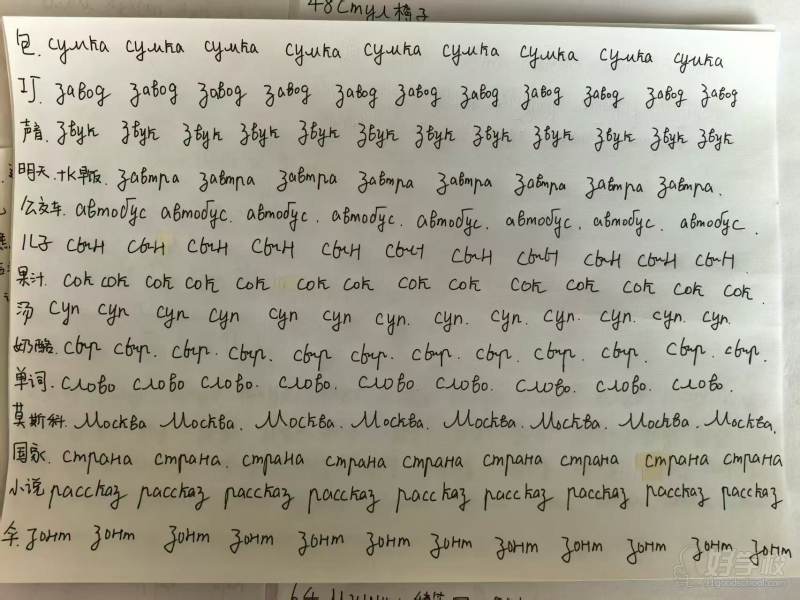 48 Стул 椅子
包. сумка сумка сумка сумка сумка сумка сумка сумка сумка
工厂. завод завод завод завод завод завод завод завод завод завод завод
声音. звук звук звук звук звук звук звук звук звук звук звук звук
明天. завтра завтра завтра завтра завтра завтра завтра завтра.
公交车. автобус автобус. автобус. автобус. автобус. автобус. автобус. автобус.
儿子 сын сын сын сын сын сын сын сын сын сын сын.
果汁. сок сок сок сок сок сок сок сок сок сок сок сок сок сок.
汤 суп суп суп суп суп суп суп. суп. суп. суп. суп. суп. суп.
奶酪. сыр сыр. сыр. сыр. сыр сыр. сыр. сыр. сыр. сыр. сыр. сыр.
单词. слово слово слово. слово. слово слово. слово. слово. слово.
莫斯科. Москва Москва. Москва. Москва. Москва. Москва. Москва. Москва.
国家. страна страна. страна страна страна страна страна страна страна
小说 рассказ рассказ рассказ рассказ рассказ рассказ рассказ рассказ рассказ
伞. зонт зонт зонт зонт зонт зонт зонт зонт зонт зонт зонт зонт
好学校